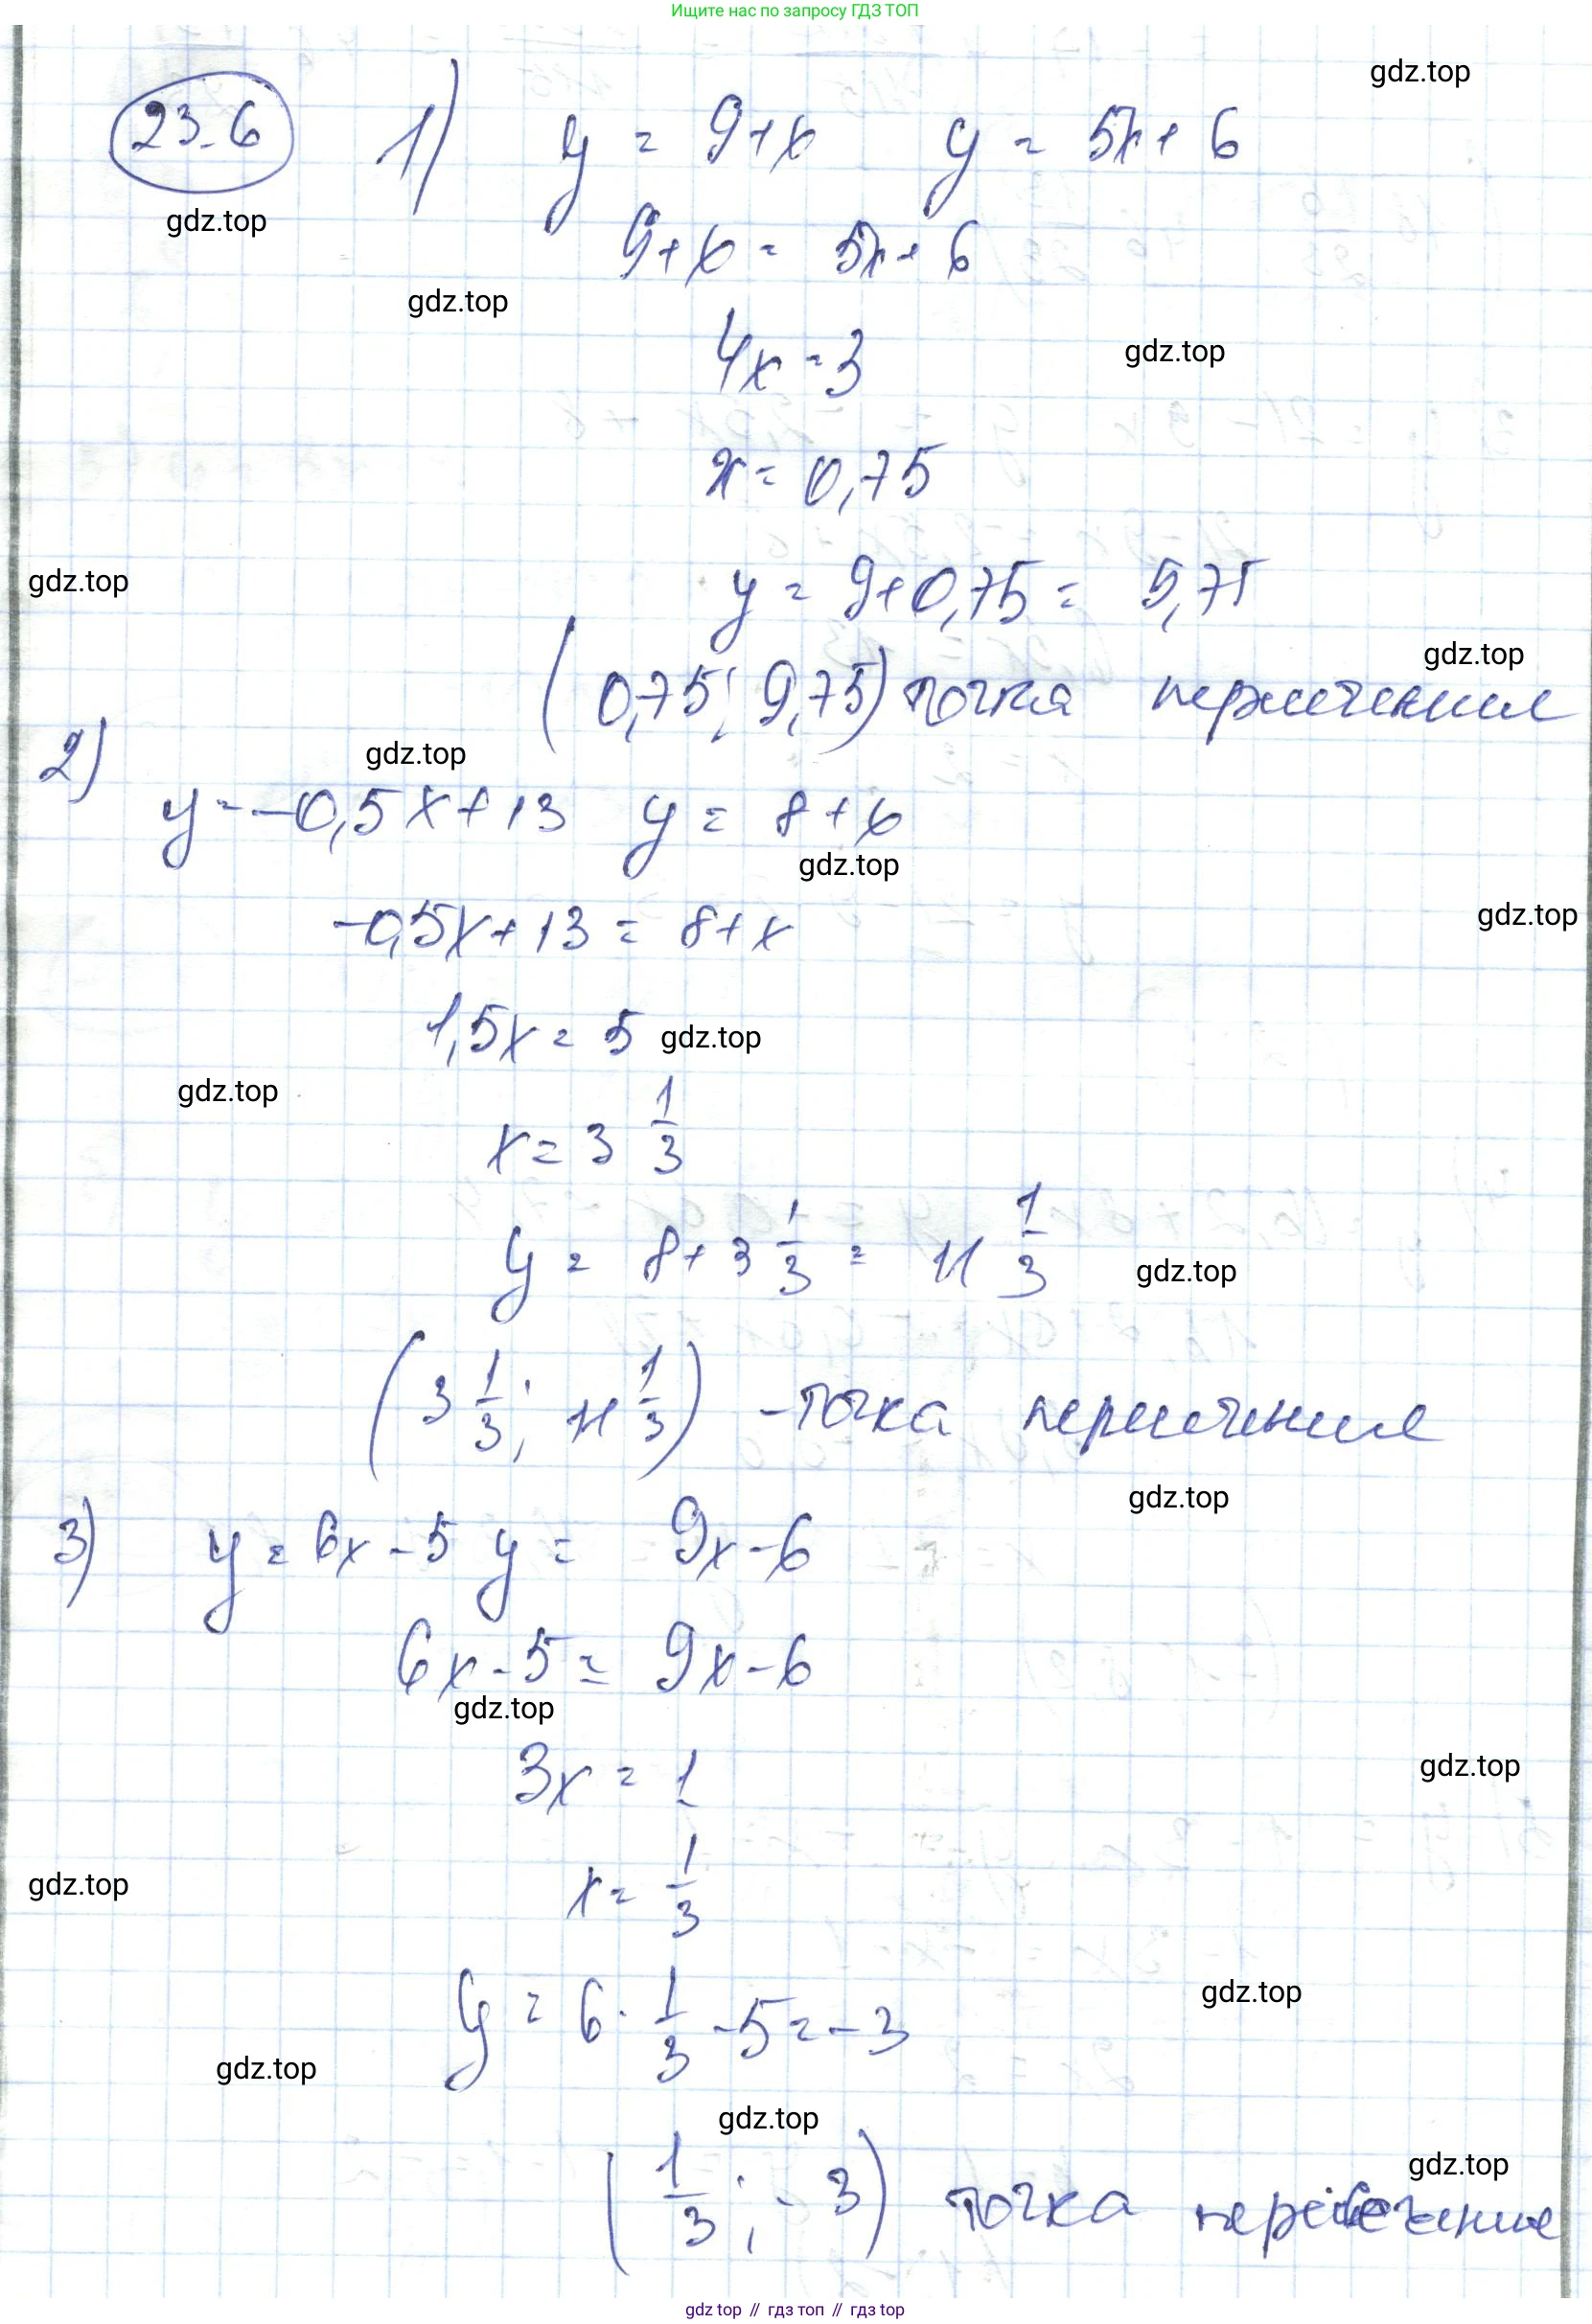 Ищите нас по запросу ГДЗ ТОП
gdz.top
23.6 1) y = 9+x y = 5x+6
gdz.top
9+x = 5x+6
gdz.top
4x=3
gdz.top
x=0,75
gdz.top
y = 9+0,75 = 9,75
gdz.top
(0,75; 9,75) точка пересечения
2)
gdz.top
y=-0,5x+13 y = 8+x
gdz.top
gdz.top
-0,5x+13 = 8+x
1,5x = 5 gdz.top
gdz.top
x = 3 1/3
y = 8+3 1/3 = 11 1/3
gdz.top
(3 1/3; 11 1/3) - точка пересечения
gdz.top
3) y = 6x-5 y = 9x-6
6x-5 = 9x-6
gdz.top
3x = 1
gdz.top
x = 1/3
gdz.top
y = 6·1/3-5=-3
gdz.top
gdz.top
gdz.top
gdz.top
(1/3; -3) точка пересечение
gdz top // гдз топ // gdz top